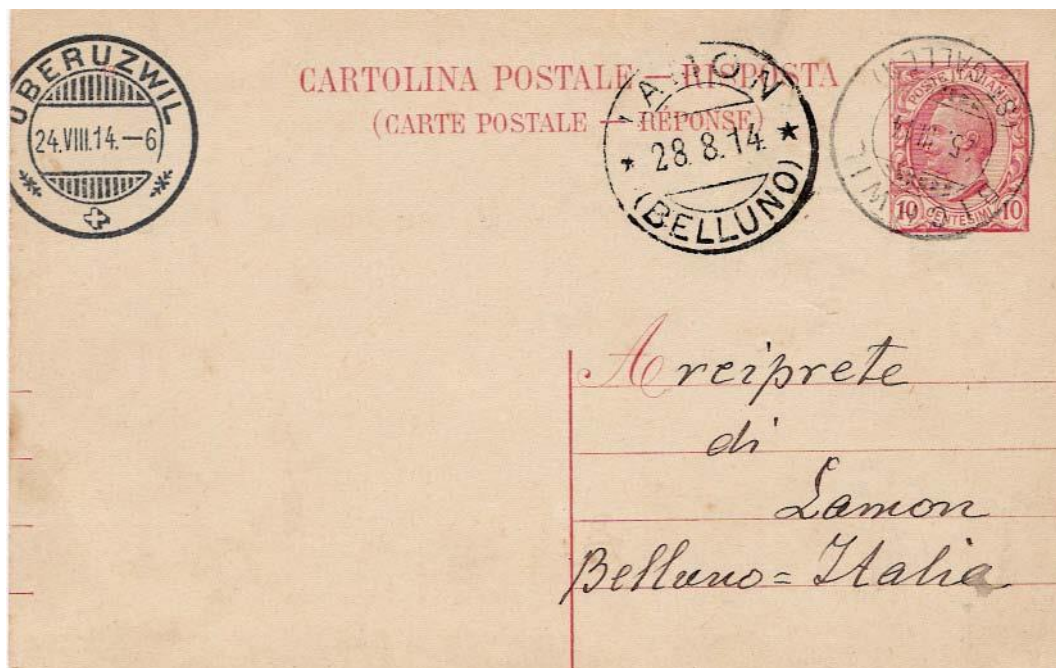 OBERUZWIL
24.VIII.14.—6
CARTOLINA POSTALE — RISPOSTA
(CARTE POSTALE — RÉPONSE)
LAMON
28.8.14
(BELLUNO)
POSTE ITALIANE
10 CENTESIMI 10
Arciprete
di
Lamon
Belluno = Italia